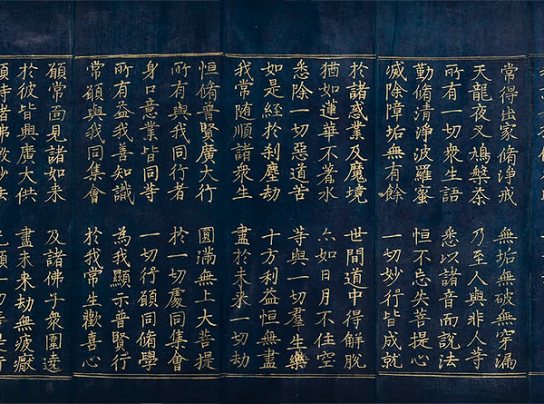 常得出家脩淨戒 無垢無破無穿漏
天龍夜叉鳩槃荼 乃至人與非人等
所有一切衆生語 悉以諸音而說法
勤脩清淨波羅蜜 恒不忘失菩提心
滅除障垢無有餘 一切妙行皆成就
於諸惑業及魔境 世間道中得解脫
猶如蓮華不著水 亦如日月不住空
悉除一切惡道苦 等與一切羣生樂
如是經於刹塵劫 十方利益恒無盡
我常随順諸衆生 盡於未來一切劫
恒脩普賢廣大行 圓滿無上大菩提
所有與我同行者 於一切處同集會
身口意業皆同等 一切行願同脩學
所有益我善知識 為我顯示普賢行
常願與我同集會 於我常生歡喜心
願常面見諸如來 及諸佛子衆圍遶
於彼皆興廣大供 盡未來劫無疲厭